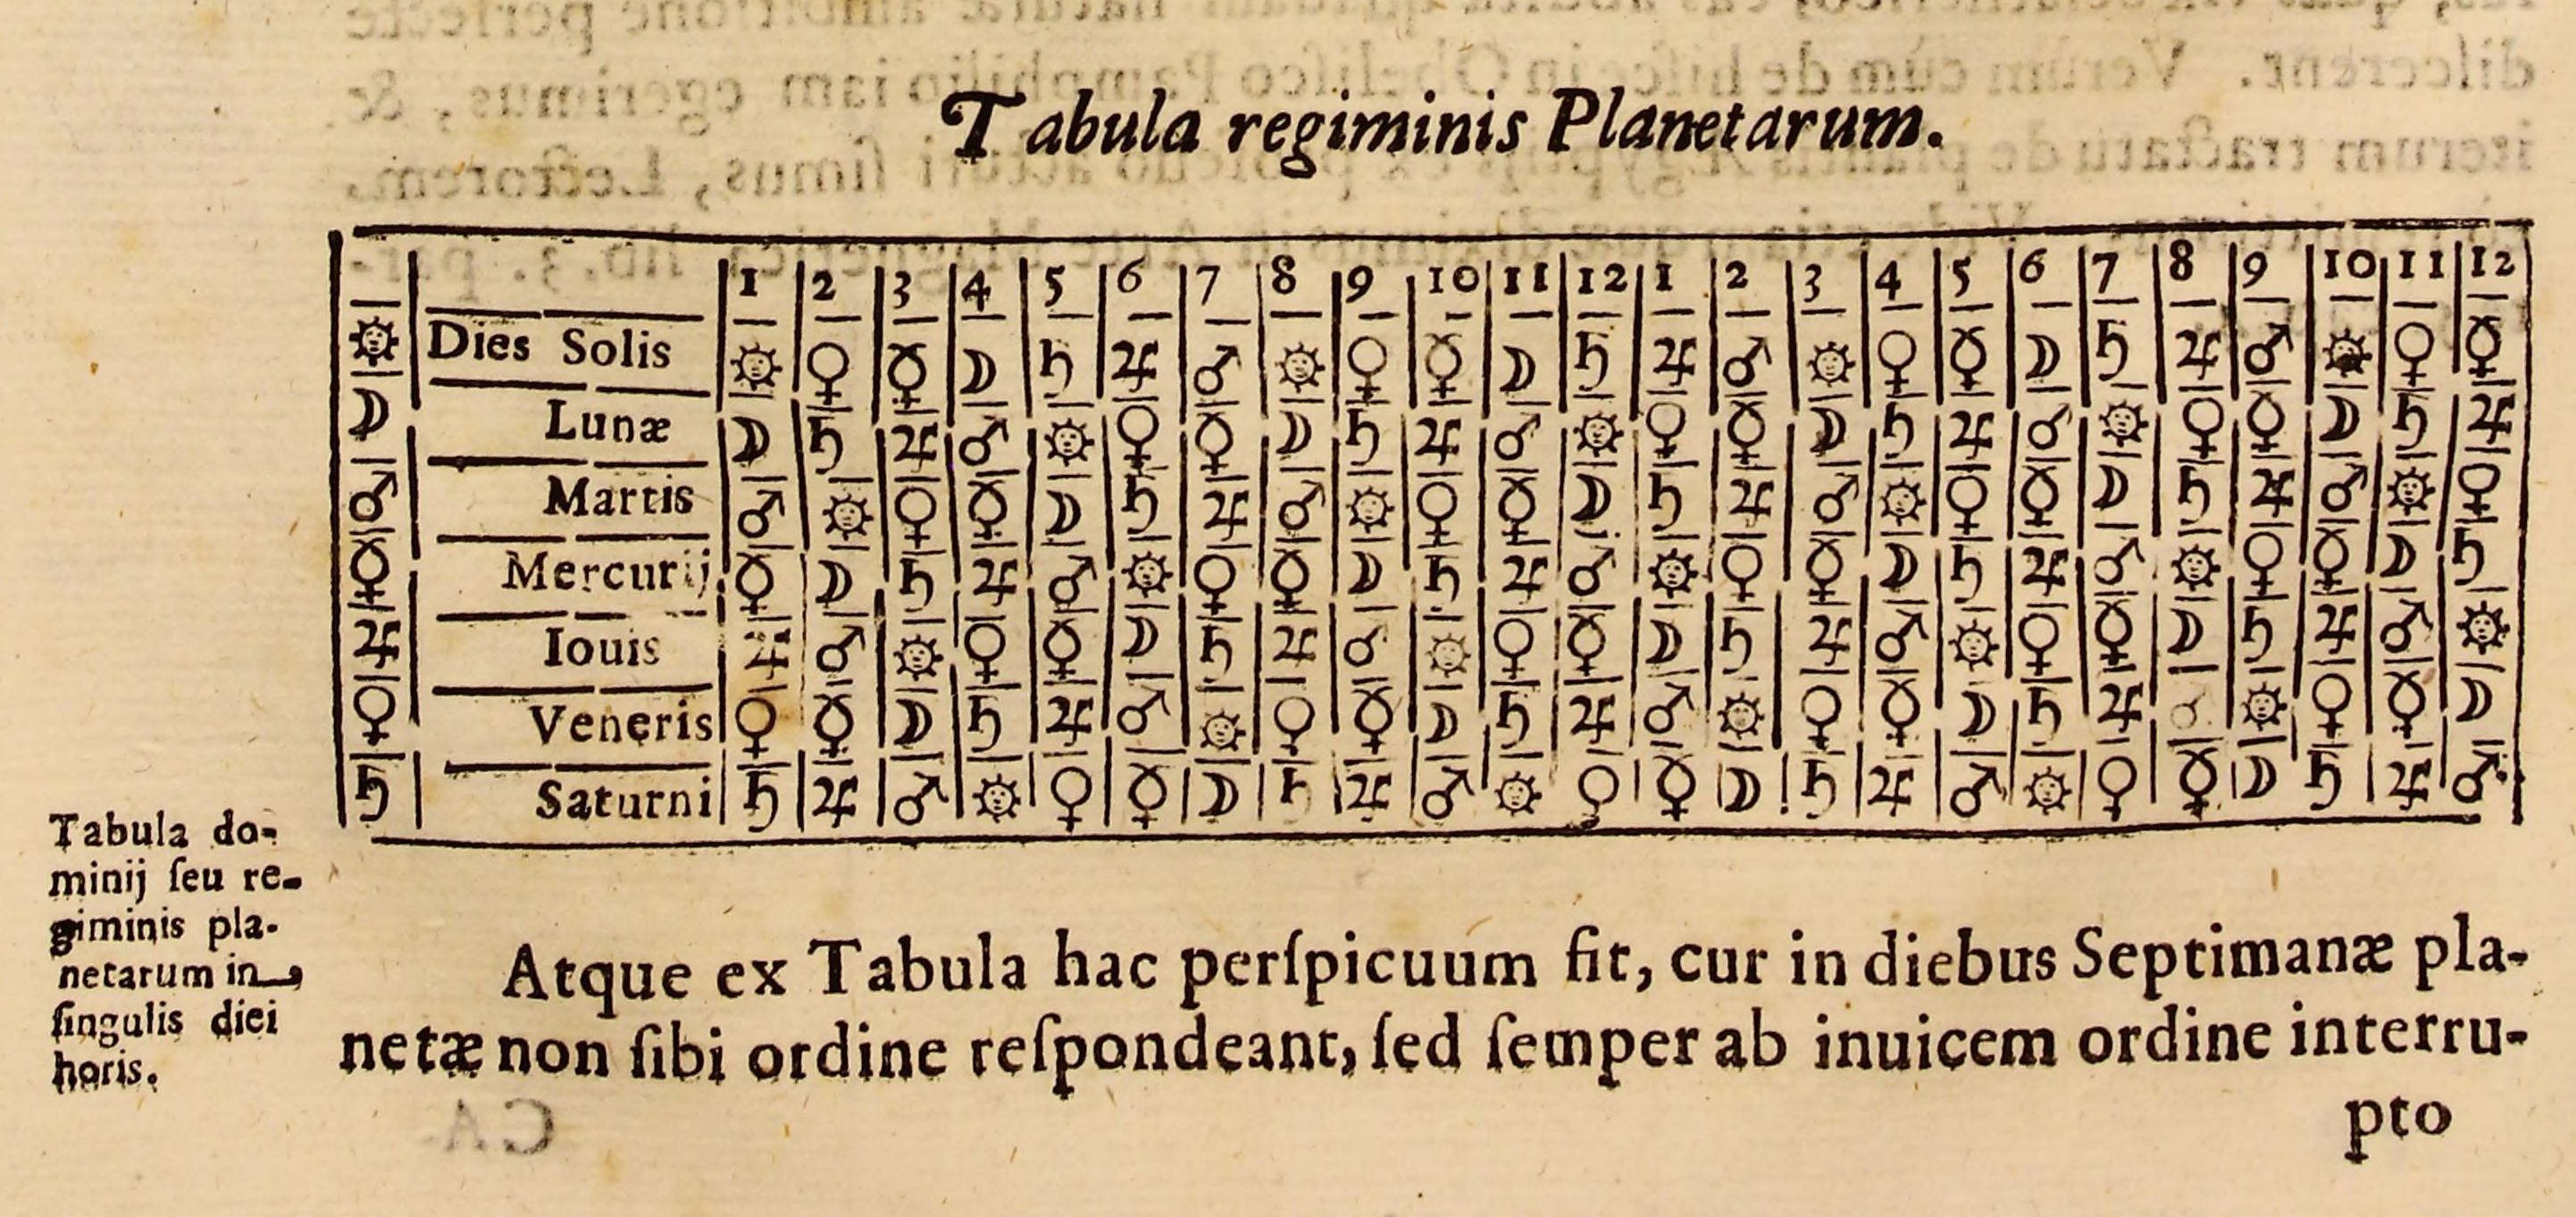 Tabula regiminis Planetarum.
1 2 3 4 5 6 7 8 9 10 11 12 1 2 3 4 5 6 7 8 9 10 11 12
☉ Dies Solis ☉ ♀ ☿ ☽ ♄ ♃ ♂ ☉ ♀ ☿ ☽ ♄ ♃ ♂ ☉ ♀ ☿ ☽ ♄ ♃ ♂ ☉ ♀ ☿
☽ Lunæ ☽ ♄ ♃ ♂ ☉ ♀ ☿ ☽ ♄ ♃ ♂ ☉ ♀ ☿ ☽ ♄ ♃ ♂ ☉ ♀ ☿ ☽ ♄ ♃
♂ Martis ♂ ☉ ♀ ☿ ☽ ♄ ♃ ♂ ☉ ♀ ☿ ☽ ♄ ♃ ♂ ☉ ♀ ☿ ☽ ♄ ♃ ♂ ☉ ♀
☿ Mercurij ☿ ☽ ♄ ♃ ♂ ☉ ♀ ☿ ☽ ♄ ♃ ♂ ☉ ♀ ☿ ☽ ♄ ♃ ♂ ☉ ♀ ☿ ☽ ♄
♃ Iouis ♃ ♂ ☉ ♀ ☿ ☽ ♄ ♃ ♂ ☉ ♀ ☿ ☽ ♄ ♃ ♂ ☉ ♀ ☿ ☽ ♄ ♃ ♂ ☉
♀ Veneris ♀ ☿ ☽ ♄ ♃ ♂ ☉ ♀ ☿ ☽ ♄ ♃ ♂ ☉ ♀ ☿ ☽ ♄ ♃ ♂ ☉ ♀ ☿ ☽
♄ Saturni ♄ ♃ ♂ ☉ ♀ ☿ ☽ ♄ ♃ ♂ ☉ ♀ ☿ ☽ ♄ ♃ ♂ ☉ ♀ ☿ ☽ ♄ ♃ ♂
Tabula do-
minij ſeu re-
giminis pla-
netarum in
ſingulis diei
horis.
Atque ex Tabula hac perſpicuum fit, cur in diebus Septimanæ pla-
netæ non ſibi ordine reſpondeant, ſed ſemper ab inuicem ordine interru-
pto